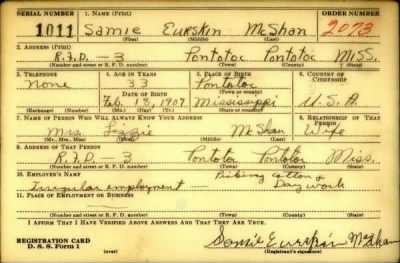 SERIAL NUMBER 1. NAME (Print) ORDER NUMBER
1011 Samie Eurskin McShan 2073
(First) (Middle) (Last)
2. ADDRESS (Print)
R.F.D-3 Pontotoc Pontotoc Miss.
(Number and street or R. F. D. number) (Town) (County) (State)
3. TELEPHONE 4. AGE IN YEARS 5. PLACE OF BIRTH 6. COUNTRY OF CITIZENSHIP
None 33 Pontotoc
DATE OF BIRTH (Town or county)
Feb. 13, 1907 Mississippi U.S.A.
(Exchange) (Number) (Mo.) (Day) (Yr.) (State or country)
7. NAME OF PERSON WHO WILL ALWAYS KNOW YOUR ADDRESS 8. RELATIONSHIP OF THAT PERSON
Mrs. Lizzie McShan Wife
(Mr., Mrs., Miss) (First) (Middle) (Last)
9. ADDRESS OF THAT PERSON
R.F.D-3 Pontotoc Pontotoc Miss.
(Number and street or R. F. D. number) (Town) (County) (State)
10. EMPLOYER'S NAME Picking cotton &
Irregular employment — Day work
11. PLACE OF EMPLOYMENT OR BUSINESS
(Number and street or R. F. D. number) (Town) (County) (State)
I AFFIRM THAT I HAVE VERIFIED ABOVE ANSWERS AND THAT THEY ARE TRUE.
REGISTRATION CARD
D. S. S. Form 1 (over) Samie Eurskin McShan
(Registrant's signature)